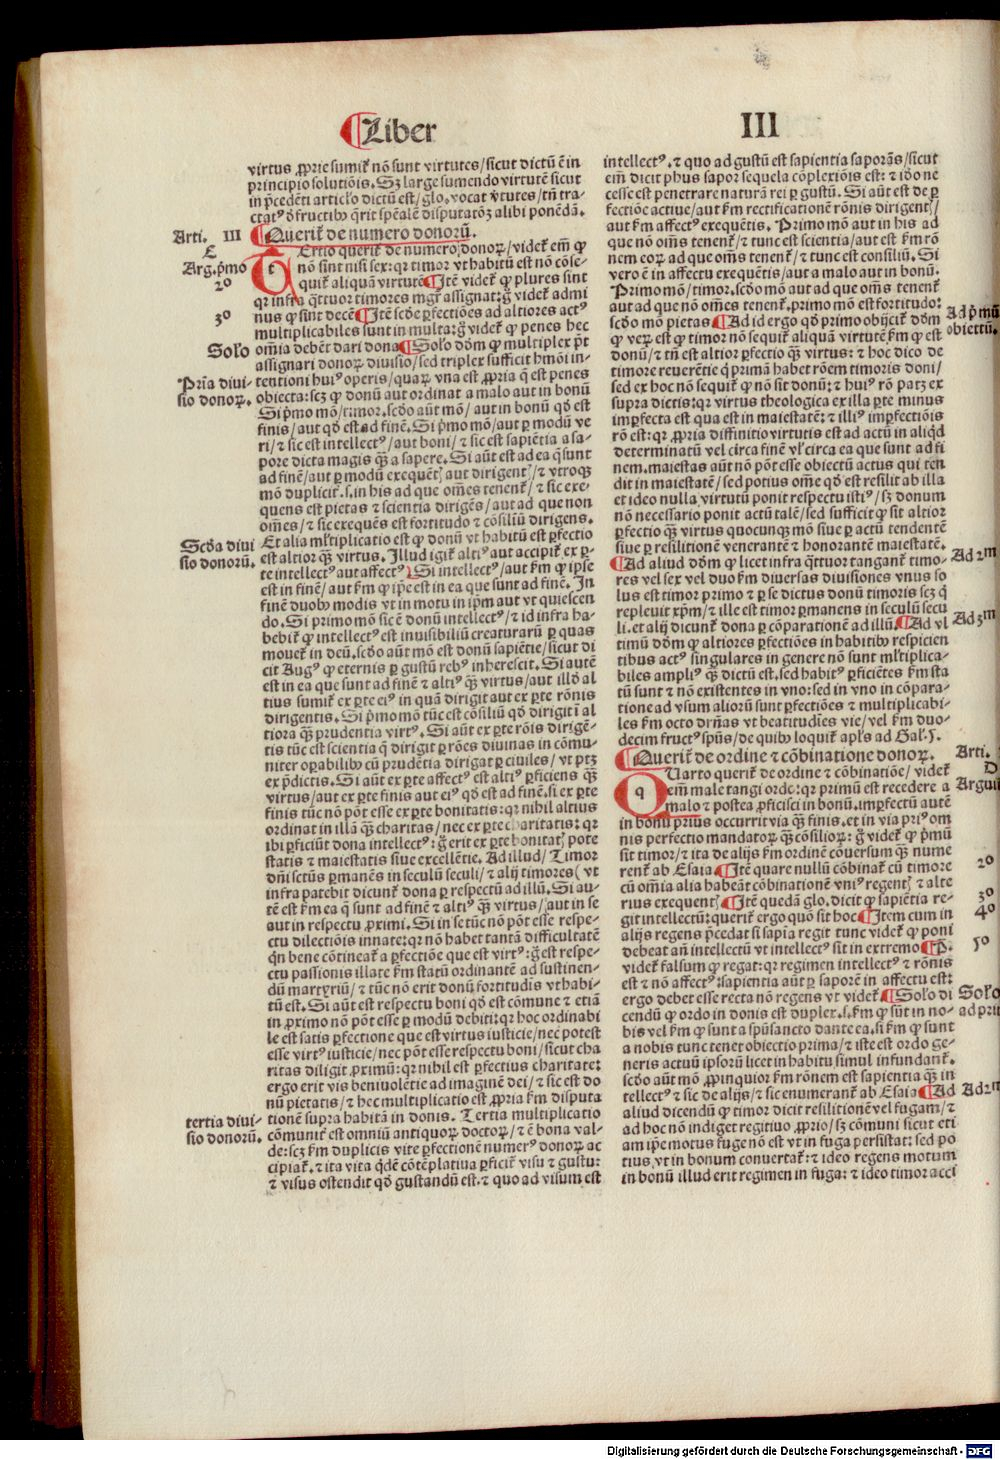 Liber
III
virtus ꝓprie sumit᷑ nõ sunt virtutes/sicut dictũ ẽ in
principio solutiõis. Sꝫ large sumendo virtutẽ sicut
in p̃cedẽti articl'o dictũ est/glo. vocat v̓tutes/tñ tra-
ctatꝰ d̓ fructibꝰ q̃rit sp̃ealẽ disputatõꝫ alibi ponẽdã.
Arti. III
¶Querit᷑ de numero donorũ.
E
Ertio querit᷑ de numero donoꝝ/videt᷑ em̃ ꝙ
Arg.p̓mo
t
nõ sint nisi sex: qꝛ timor vt habitũ est nõ cõse-
2º
quit᷑ aliquã virtutẽ ¶Itẽ videt᷑ ꝙ plures sint
qꝛ infra q̃ttuor timores mgr̃ assignat: g̊ videt᷑ admi
3º
nus ꝙ sint decẽ ¶Itẽ scd̓e ꝑfectiões ad altiores actꝰ
multiplicabiles sunt in multa: g̊ videt᷑ ꝙ penes hec
Solo
om̃ia debẽt dari dona ¶Solo dõm ꝙ multiplex p̃t
assignari donoꝝ diuisio/sed triplex sufficit hmõi in-
Pri̓a diui-
tentioni huiꝰ operis/quaꝝ vna est ꝓpria q̃ est penes
sio donoꝝ.
obiecta: scꝫ ꝙ donũ aut ordinat a malo aut in bonũ
Si p̓mo mõ/timor. scd̓o aũt mõ/aut in bonũ qd̓ est
finis/aut qd̓ est ad finẽ. Si p̓mo mõ/aut ꝑ modũ ve
ri/⁊ sic est intellectꝰ/aut boni/⁊ sic est sapiẽtia a sa-
pore dicta magis qꝫ̃ a sapere. Si aũt est ad ea q̃ sunt
ad finẽ/aut ꝑ modũ exequẽt᷑/aut dirigent᷑/⁊ vtroqꝫ
mõ duplicit᷑. s. in his ad que om̃es tenent᷑/⁊ sic exe-
quens est pietas ⁊ scientia dirigẽs/aut ad que non
om̃es/⁊ sic exequẽs est fortitudo ⁊ cõsiliũ dirigens.
Scd̓a diui
Et alia ml̓tiplicatio est ꝙ donũ vt habitũ est ꝑfectio
sio donorũ.
est altior qꝫ̃ virtus. Illud igit᷑ altiꝰ aut accipit᷑ ex ꝑ-
te intellectꝰ aut affectꝰ. Si intellectꝰ/aut k̓m ꝙ ipse
est in finẽ/aut k̓m ꝙ ip̃e est in ea que sunt ad finẽ. In
finẽ duobꝰ modis vt in motu in ip̃m aut vt quiescen
do. Si primo mõ sic ẽ donũ intellectꝰ/⁊ id infra ha-
bebit᷑ ꝙ intellectꝰ est inuisibiliũ creaturarũ ꝑ quas
mouet᷑ in deũ. scd̓o aũt mõ est donũ sapiẽtie/sicut di
cit Augꝰ ꝙ eternis ꝑ gustũ rebꝰ inherescit. Si autẽ
est in ea que sunt ad finẽ ⁊ altiꝰ qꝫ̃ virtus/aut illd̓ al
tius sumit᷑ ex ꝑte eiꝰ in quã dirigit aut ex ꝑte rõnis
dirigentis. Si p̓mo mõ tũc est cõsiliũ qd̓ dirigit ĩ al
tiora qꝫ̃ prudentia virtꝰ. Si aũt ex ꝑte rõis dirigẽ-
tis tũc est scientia q̃ dirigit ꝑ rões diuinas in cõmu-
niter oꝑabilibꝰ cũ prudẽtia dirigat ꝑ ciuiles/vt ptꝫ
ex p̃dictis. Si aũt ex ꝑte affectꝰ est altiꝰ ꝑficiens qꝫ̃
virtus/aut ex ꝑte finis aut eiꝰ qd̓ est ad finẽ. si ex ꝑte
finis tũc nõ põt esse ex ꝑte bonitatis: qꝛ nihil altius
ordinat in illã qꝫ̃ charitas/nec ex ꝑte charitatis: qꝛ
ibi ꝑficiũt dona intellectꝰ: g̊ erit ex ꝑte bonitat᷑ pote
statis ⁊ maiestatis siue excellẽtie. Ad illud/Timor
dñi sctũs ꝑmanẽs in seculũ seculi/⁊ alij timores (vt
infra patebit dicunt᷑ dona ꝑ respectũ ad illũ. Si au-
tẽ est k̓m ea q̃ sunt ad finẽ ⁊ altiꝰ qꝫ̃ virtus/aut in se
aut in respectu ꝓximi. Si in se tũc nõ põt esse respe-
ctu dilectiõis innate: qꝛ nõ habet tantã difficultatẽ
qn̓ bene cõtineat᷑ a ꝑfectiõe que est virtꝰ: g̊ est respe-
ctu passionis illate k̓m statũ ordinantẽ ad sustinen-
dũ martyriũ/⁊ tũc nõ erit donũ fortitudis vt habi-
tũ est. Si aũt est respectu boni qd̓ est cõmune ⁊ etiã
in ꝓximo nõ põt esse ꝑ modũ debiti: qꝛ hoc ordinabi
le est satis ꝑfectione que est virtus iusticie/nec potest
esse virtꝰ iusticie/nec põt esse respectu boni/sicut cha
ritas diligit ꝓximũ: qꝛ nihil est ꝑfectius charitate:
ergo erit vis beniuolẽtie ad imaginẽ dei/⁊ sic est do
nũ pietatis/⁊ hec multiplicatio est ꝓpria k̓m disputa
tertia diui-
tionẽ supra habitã in donis. Tertia multiplicatio
sio donorũ.
cõmunit᷑ est omniũ antiquoꝝ doctoꝝ/⁊ ẽ bona val-
de: scꝫ k̓m duplicis vite ꝑfectionẽ numerꝰ donoꝝ ac
cipiat᷑. ⁊ ita vita q̓dẽ cõtẽplatiua ꝑficit᷑ visu ⁊ gustu:
⁊ visus ostendit qd̓ gustandũ est. ⁊ quo ad visum est
intellectꝰ. ⁊ quo ad gustũ est sapientia saporãs/sicut
em̃ dicit phus sapor sequela cõplexiõis est: ⁊ id̓o ne
cesse est penetrare naturã rei ꝑ gustũ. Si aũt est de ꝑ
fectiõe actiue/aut k̓m rectificationẽ rõnis dirigent᷑/
aut k̓m affectꝰ exequẽtis. Primo mõ aut in his ad
que nõ om̃s tenent᷑/⁊ tunc est scientia/aut est k̓m rõ
nem eoꝝ ad que om̃s tenent᷑/⁊ tunc est consiliũ. Si
vero ẽ in affectu exequẽtis/aut a malo aut in bonũ.
Primo mõ/timor. scd̓o mõ aut ad que om̃s tenent᷑
aut ad que nõ om̃es tenent᷑. primo mõ est fortitudo:
scd̓o mõ pietas ¶Ad id ergo qd̓ primo obijcit᷑ dõm
Ad p̓mũ
obiectũ.
ꝙ veꝝ est ꝙ timor nõ sequit᷑ aliquã virtutẽ k̓m ꝙ est
donũ/⁊ tñ est altior ꝑfectio qꝫ̃ virtus: ⁊ hoc dico de
timore reuerẽtie q̃ primã habet rõem timoris doni/
sed ex hoc nõ sequit᷑ ꝙ nõ sit donũ: ⁊ huiꝰ rõ patꝫ ex
supra dictis: qꝛ virtus theologica ex illa ꝑte minus
imꝑfecta est qua est in maiestatẽ: ⁊ illiꝰ imꝑfectiõis
rõ est: qꝛ ꝓpria diffinitio virtutis est ad actũ in aliqd̓
determinatũ vel circa finẽ vl̓ circa ea que sunt ad fi
nem. maiestas aũt nõ põt esse obiectũ actus qui ten
dit in maiestatẽ/sed potius om̃e qd̓ est resilit ab illa
et ideo nulla virtutũ ponit respectu istiꝰ/sꝫ donum
nõ necessario ponit actũ talẽ/sed sufficit ꝙ sit altior
ꝑfectio qꝫ̃ virtus quocunqꝫ mõ siue ꝑ actũ tendentẽ
siue ꝑ resilitionẽ venerantẽ ⁊ honorantẽ maiestatẽ.
Ad 2m
¶Ad aliud dõm ꝙ licet infra q̃ttuor tangant᷑ timo-
res vel sex vel duo k̓m diuersas diuisiones vnus so
lus est timor primo ⁊ ꝑ se dictus donũ timoris scꝫ q̃
repleuit xp̃m/⁊ ille est timor ꝑmanens in seculũ secu
li. et alij dicunt᷑ dona ꝑ cõparationẽ ad illũ. ¶Ad vl
Ad 3m
timũ dõm ꝙ altiores ꝑfectiões in habitibꝰ respicien
tibus actꝰ singulares in genere nõ sunt ml̓tiplica-
biles ampliꝰ qꝫ̃ dictũ est. sed habitꝰ ꝑficiẽtes k̓m sta
tũ sunt ⁊ nõ existentes in vno: sed in vno in cõpara-
tione ad vsum aliorũ sunt ꝑfectiões ⁊ multiplicabi-
les k̓m octo drñas vt beatitudĩes vie/vel k̓m duo-
decim fructꝰ sp̃us/de quibꝰ loquit᷑ apl̓s ad Gal. 5.
¶Querit᷑ de ordine ⁊ cõbinatione donoꝝ.
Arti.
D
Uarto querit᷑ de ordine ⁊ cõbinatiõe/videt᷑
q
em̃ male tangi ordo: qꝛ primũ est recedere a
malo ⁊ postea ꝓficisci in bonũ. imꝑfectũ autẽ
in bonũ prius occurrit via qꝫ̃ finis. et in via priꝰ om
nis perfectio mandatoꝝ qꝫ̃ cõsilioꝝ: g̊ videt᷑ ꝙ p̓mũ
sit timor/⁊ ita de alijs k̓m ordinẽ cõuersum qꝫ̃ nume
rent᷑ ab Esaia ¶Itẽ quare nullũ cõbinat᷑ cũ timore
2º
cũ om̃ia alia habeãt cõbinationẽ vniꝰ regent᷑ ⁊ alte
rius exequent᷑ ¶Itẽ quedã glo. dicit ꝙ sapiẽtia re-
3º
git intellectũ: querit᷑ ergo quõ sit hoc ¶Item cum in
4º
alijs regens p̃cedat si sapĩa regit tunc videt᷑ ꝙ poni
debeat añ intellectũ vt intellectꝰ sit in extremo ¶P̃.
5º
videt᷑ falsum ꝙ regat: qꝛ regimen intellectꝰ ⁊ rõnis
est ⁊ nõ affectꝰ: sapientia aũt ꝑ saporẽ in affectu est:
ergo debet esse recta nõ regens vt videt᷑. ¶Solo di
Solo
cendũ ꝙ ordo in donis est duplex. s. k̓m ꝙ sũt in no-
ad pri
bis vel k̓m ꝙ sunt a sp̃usancto dante ea. si k̓m ꝙ sunt
a nobis tunc tenet obiectio prima/⁊ iste est ordo ge-
neris actuũ ipsorũ licet in habitu simul infundant᷑.
scd̓o aũt mõ ꝓpinquior k̓m rõnem est sapientia qꝫ̃ in
tellectꝰ ⁊ sic de alijs/⁊ sic enumerant᷑ ab Esaia ¶Ad
Ad 2m
aliud dicendũ ꝙ timor dicit resilitionẽ vel fugam/⁊
ad hoc nõ indiget regitiuo ꝓprio/sꝫ cõmuni sicut eti
am ip̃e motus fuge nõ est vt in fuga persistat: sed po
tius vt in bonum conuertat᷑: ⁊ ideo regens motum
in bonũ illud erit regimen in fuga: ⁊ ideo timor acci
Digitalisierung gefördert durch die Deutsche Forschungsgemeinschaft - DFG